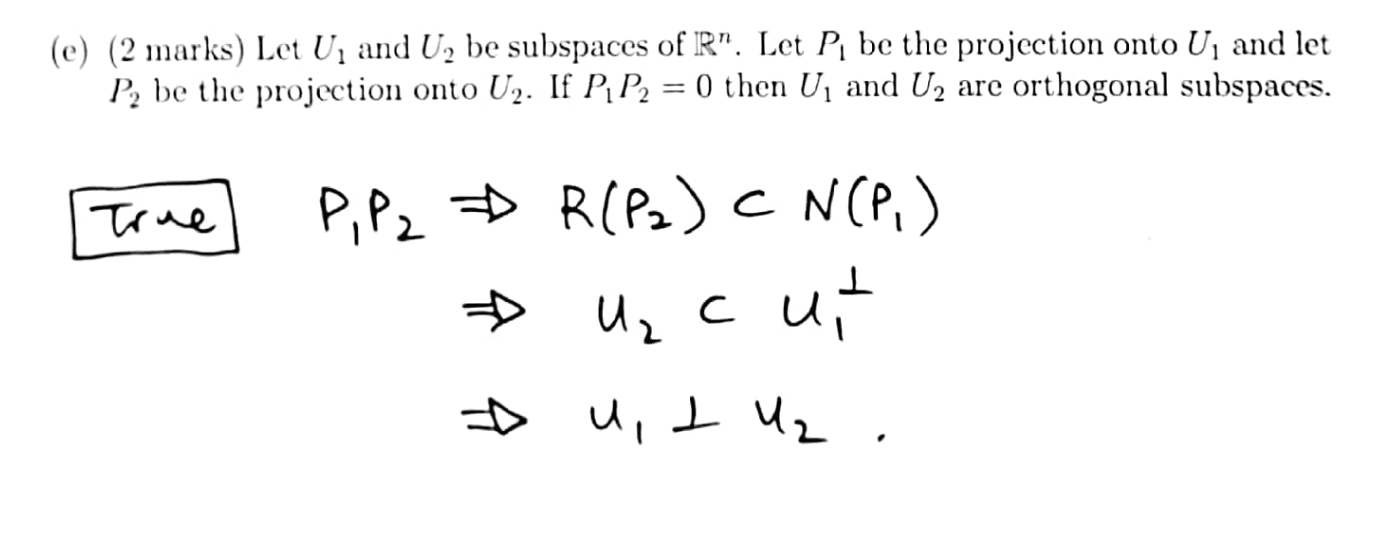 (e) (2 marks) Let U₁ and U₂ be subspaces of ℝⁿ. Let P₁ be the projection onto U₁ and let
P₂ be the projection onto U₂. If P₁P₂ = 0 then U₁ and U₂ are orthogonal subspaces.
True P₁P₂ ⇒ R(P₂) ⊂ N(P₁)
⇒ U₂ ⊂ U₁^⊥
⇒ U₁ ⊥ U₂ .